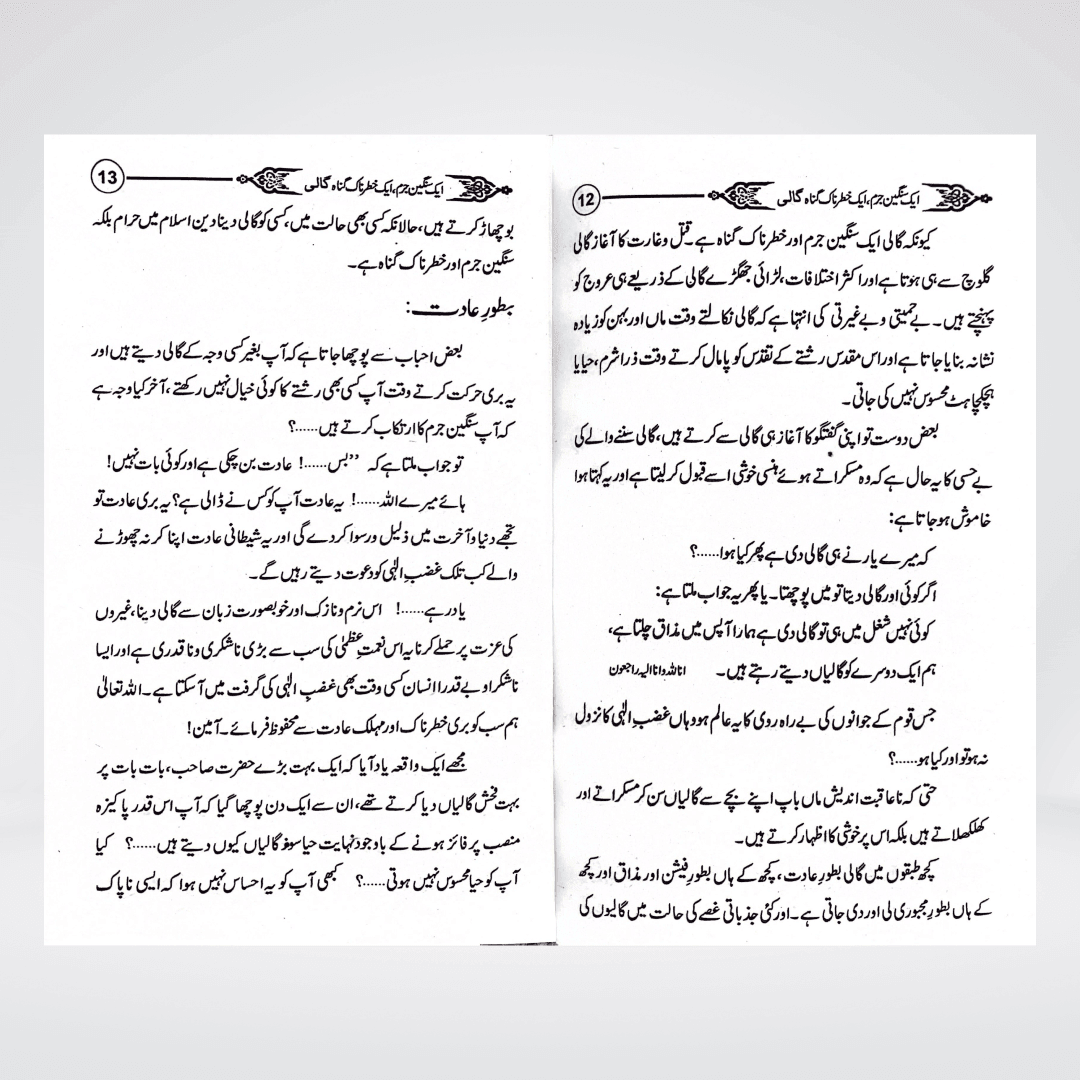 ایک سنگین جرم، ایک خطرناک گناہ گالی
12
کیونکہ گالی ایک سنگین جرم اور خطرناک گناہ ہے۔ قتل وغارت کا آغاز گالی
گلوچ سے ہی ہوتا ہے اور اکثر اختلافات، لڑائی جھگڑے گالی کے ذریعے ہی عروج کو
پہنچتے ہیں۔ بے حمیتی و بے غیرتی کی انتہا ہے کہ گالی نکالتے وقت ماں اور بہن کو زیادہ
نشانہ بنایا جاتا ہے اور اس مقدس رشتے کے تقدّس کو پامال کرتے وقت ذرا شرم، حیا یا
ہچکچاہٹ محسوس نہیں کی جاتی۔
بعض دوست تو اپنی گفتگو کا آغاز ہی گالی سے کرتے ہیں، گالی سننے والے کی
بے حسی کا یہ حال ہے کہ وہ مسکراتے ہوئے ہنسی خوشی اسے قبول کر لیتا ہے اور یہ کہتا ہوا
خاموش ہو جاتا ہے:
کہ میرے یار نے ہی گالی دی ہے پھر کیا ہوا......؟
اگر کوئی اور گالی دیتا تو میں پوچھتا۔ یا پھر یہ جواب ملتا ہے:
کوئی نہیں شغل میں ہی تو گالی دی ہے ہمارا آپس میں مذاق چلتا ہے،
ہم ایک دوسرے کو گالیاں دیتے رہتے ہیں۔ اناللہ وانا الیہ راجعون
جس قوم کے جوانوں کی بے راہ روی کا یہ عالم ہو وہاں غضبِ الٰہی کا نزول
نہ ہو تو اور کیا ہو......؟
حتی کہ نا عاقبت اندیش ماں باپ اپنے بچے سے گالیاں سن کر مسکراتے اور
کھلکھلاتے ہیں بلکہ اس پر خوشی کا اظہار کرتے ہیں۔
کچھ طبقوں میں گالی بطورِ عادت، کچھ کے ہاں بطورِ فیشن اور مذاق اور کچھ
کے ہاں بطورِ مجبوری لی اور دی جاتی ہے۔ اور کئی جذباتی غصے کی حالت میں گالیوں کی
ایک سنگین جرم، ایک خطرناک گناہ گالی
13
بوچھاڑ کرتے ہیں، حالانکہ کسی بھی حالت میں، کسی کو گالی دینا دین اسلام میں حرام بلکہ
سنگین جرم اور خطرناک گناہ ہے۔
بطورِ عادت:
بعض احباب سے پوچھا جاتا ہے کہ آپ بغیر کسی وجہ کے گالی دیتے ہیں اور
یہ بری حرکت کرتے وقت آپ کسی بھی رشتے کا کوئی خیال نہیں رکھتے، آخر کیا وجہ ہے
کہ آپ سنگین جرم کا ارتکاب کرتے ہیں......؟
تو جواب ملتا ہے کہ ”بس......! عادت بن چکی ہے اور کوئی بات نہیں!
ہائے میرے اللہ......! یہ عادت آپ کو کس نے ڈالی ہے؟ یہ بری عادت تو
تجھے دنیا وآخرت میں ذلیل ورسوا کر دے گی اور یہ شیطانی عادت اپنا کر نہ چھوڑنے
والے کب تلک غضبِ الٰہی کو دعوت دیتے رہیں گے۔
یاد رہے......! اس نرم ونازک اور خوبصورت زبان سے گالی دینا، غیروں
کی عزت پر حملے کرنا یہ اس نعمتِ عظمٰی کی سب سے بڑی ناشکری و ناقدری ہے اور ایسا
ناشکرا و بے قدرا انسان کسی وقت بھی غضبِ الٰہی کی گرفت میں آسکتا ہے۔ اللہ تعالیٰ
ہم سب کو بری خطرناک اور مہلک عادت سے محفوظ فرمائے۔ آمین!
مجھے ایک واقعہ یاد آیا کہ ایک بہت بڑے حضرت صاحب، بات بات پر
بہت فحش گالیاں دیا کرتے تھے، ان سے ایک دن پوچھا گیا کہ آپ اس قدر پاکیزہ
منصب پر فائز ہونے کے باوجود نہایت حیا سوز گالیاں کیوں دیتے ہیں......؟ کیا
آپ کو حیا محسوس نہیں ہوتی......؟ کبھی آپ کو یہ احساس نہیں ہوا کہ ایسی ناپاک